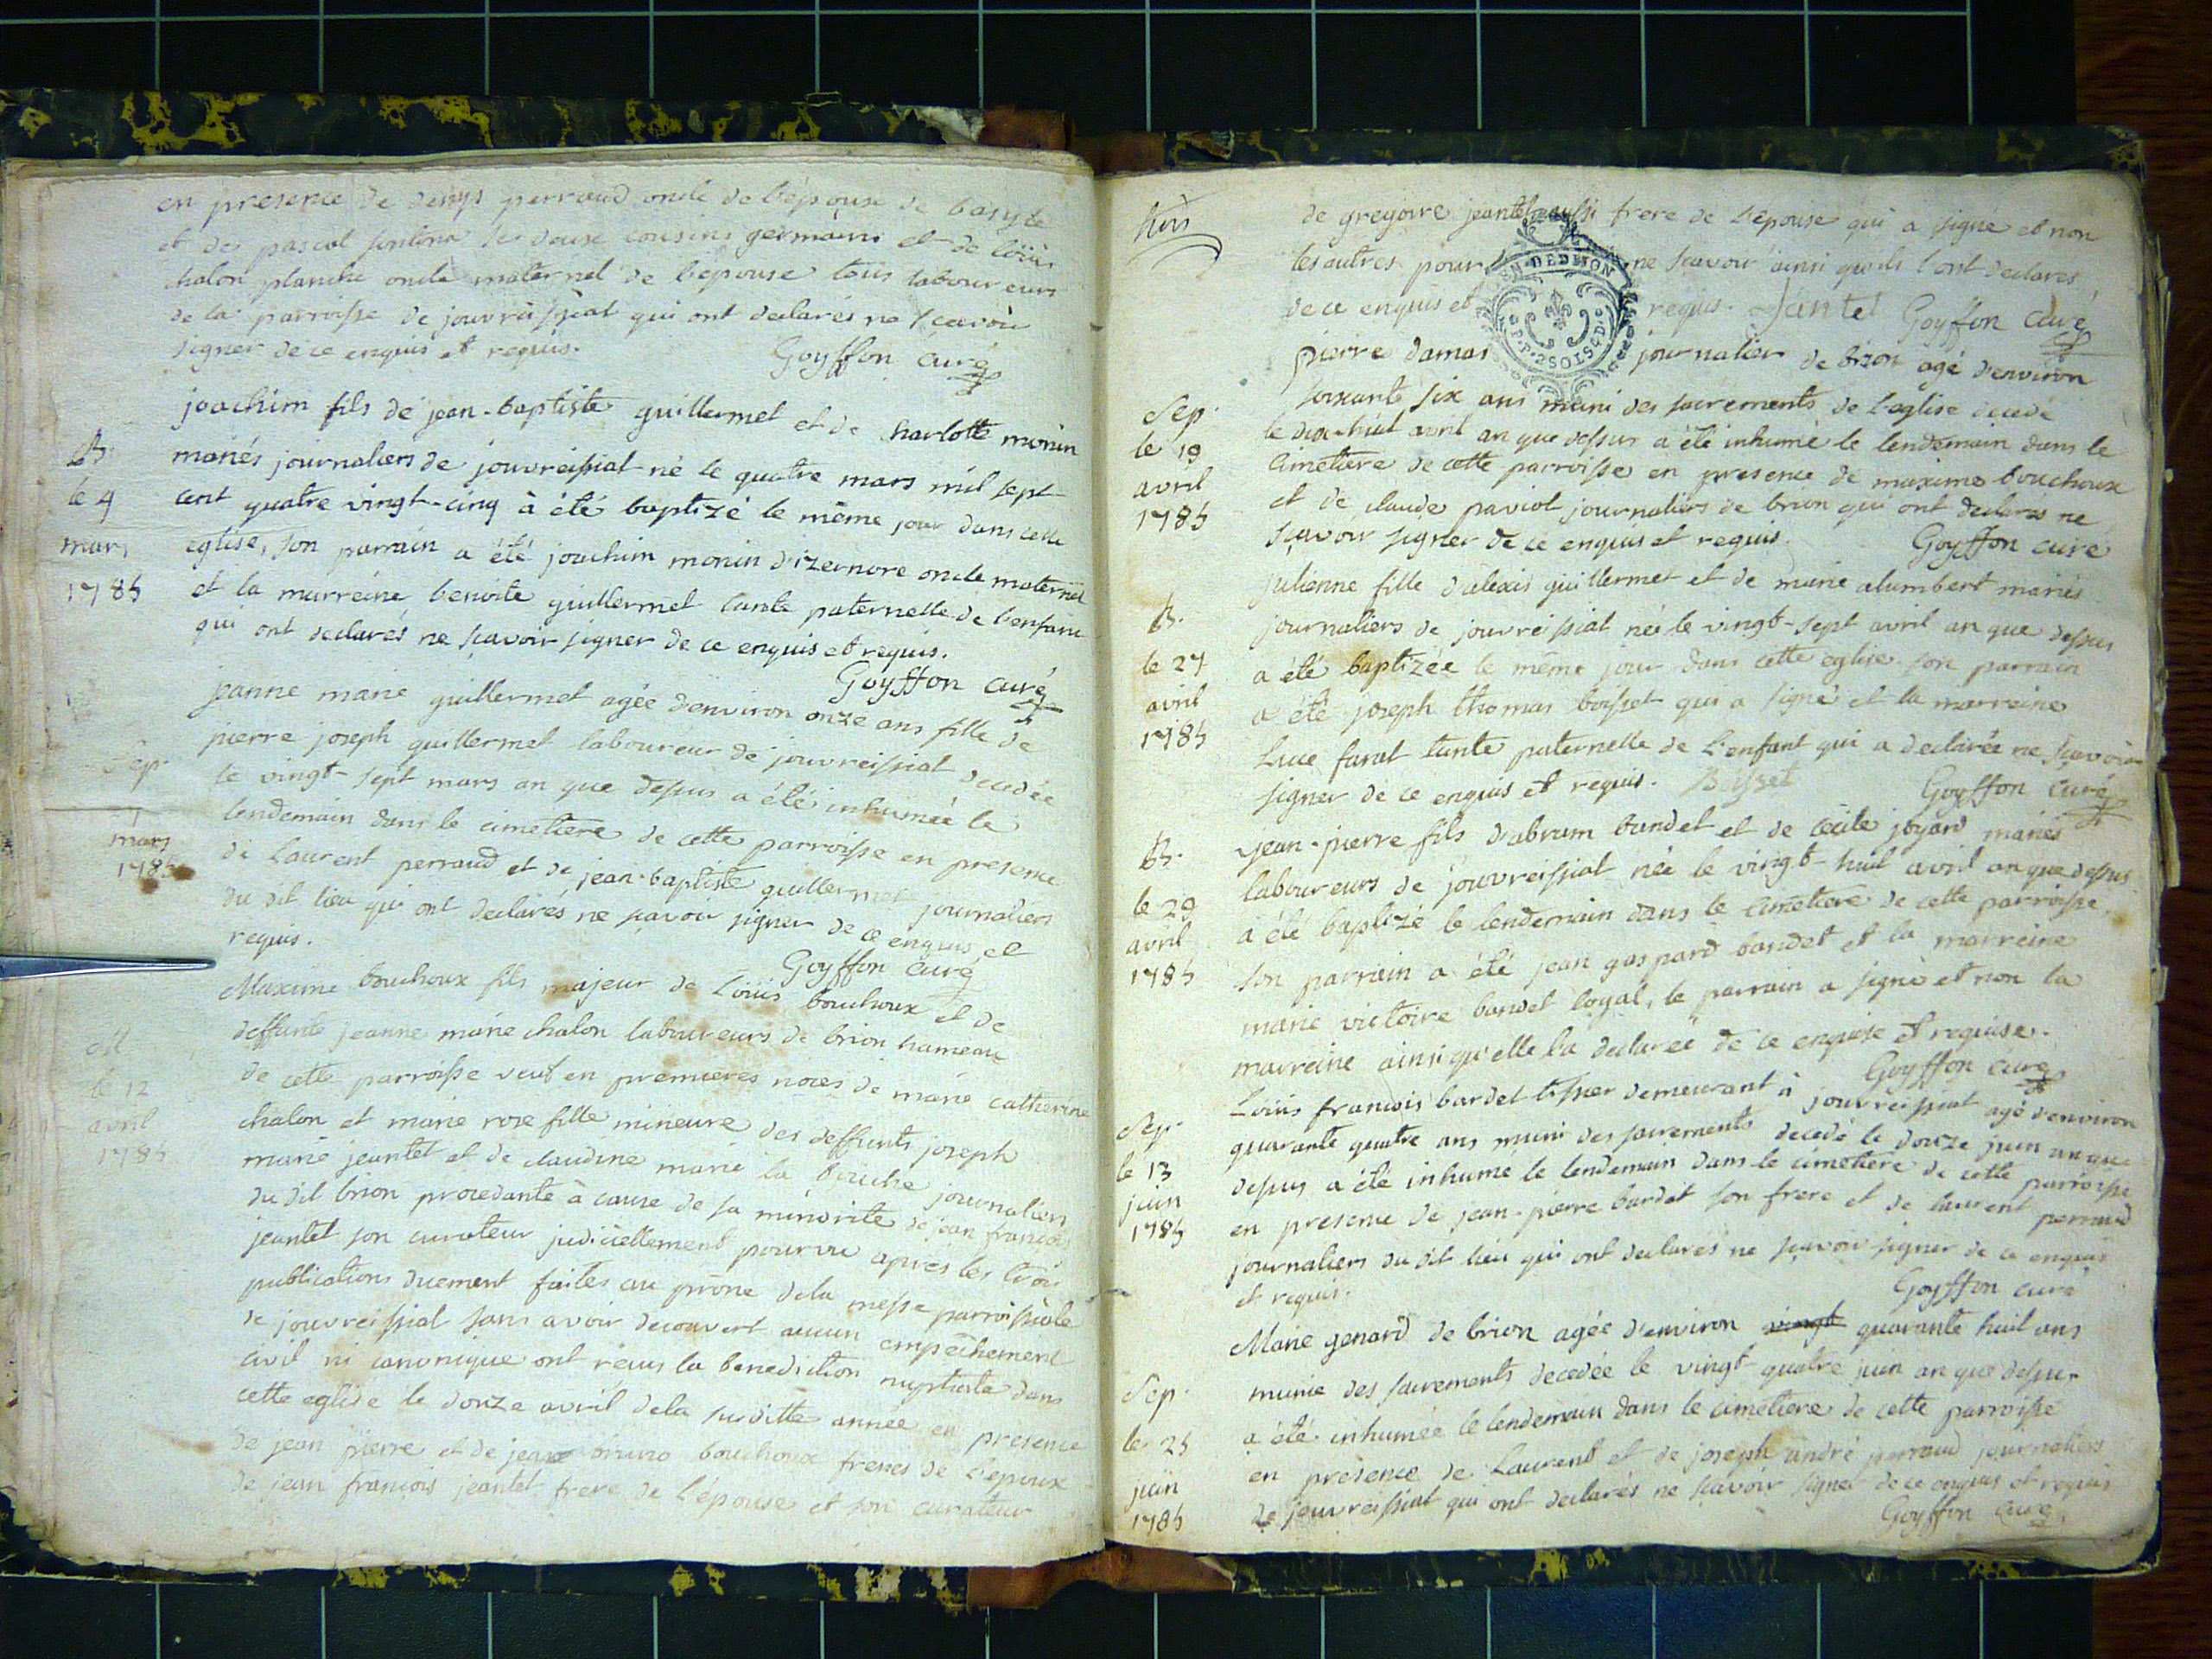 en presence de denys perraud oncle de l'épouse de basyle
et de pascal fontena ses deux cousins germains et de loüis
chalon planche oncle maternel de l'épouse tous laboureurs
de la parroisse de jouvreissiat qui ont declarés ne scavoir
signer de ce enquis et requis. Goyffon curé
B.
le 4
mars
1785
joachim fils de jean-baptiste guillermet et de charlotte monin
mariés journaliers de jouvreissiat né le quatre mars mil sept
cent quatre vingt-cinq à été baptizé le même jour dans cette
eglise, son parrain a été joachim monin d'izernore oncle maternel
et la marreine benoite guillermet tante paternelle de l'enfant
qui ont declarés ne scavoir signer de ce enquis et requis.
Goyffon curé
Sep.
mars
1785
jeanne marie guillermet agée d'environ onze ans fille de
pierre joseph guillermet laboureur de jouvreissiat decedée
le vingt-sept mars an que dessus a été inhumée le
lendemain dans le cimetiere de cette parroisse en presence
de Laurent perraud et de jean-baptiste guillermet journaliers
du dit lieu qui ont declarés ne scavoir signer de ce enquis et
requis. Goyffon curé
M
le 12
avril
1785
Maxime bouchoux fils majeur de Loüis bouchoux et de
deffunte jeanne marie chalon laboureurs de brion hameau
de cette parroisse veuf en premieres noces de marie catherine
chalon et marie rose fille mineure des deffunts joseph
marie jeantet et de claudine marie la bouche journaliers
du dit brion procedante à cause de sa minorité de jean françois
jeantet son curateur judiciellement pourvu après les trois
publications duement faites au prône de la messe parroissiale
de jouvreissiat sans avoir decouvert aucun empêchement
civil ni canonique ont reçus la benediction nuptiale dans
cette eglise le douze avril de la susditte année en presence
de jean pierre et de jean bruno bouchoux freres de l'epoux
de jean françois jeantet frere de l'épouse et son curateur
de gregoire jeantet aussi frere de l'épouse qui a signé et non
les autres pour ne scavoir ainsi qu'ils l'ont declarés
de ce enquis et requis. Jantet Goyffon curé
EN DEDITION
P.P. 2 SOLS 4 D.
Sep.
le 19
avril
1785
pierre damas journalier de brion agé d'environ
soixante six ans muni des sacrements de l'eglise decede
le dix-huit avril an que dessus a été inhumé le lendemain dans le
cimetiere de cette parroisse en presence de maxime bouchoux
et de claude paviot journaliers de brion qui ont declarés ne
sçavoir signer de ce enquis et requis. Goyffon curé
B.
le 27
avril
1785
julienne fille d'alexis guillermet et de marie alumbert mariés
journaliers de jouvreissiat née le vingt-sept avril an que dessus
a été baptizée le même jour dans cette eglise son parrain
a été joseph thomas boisset qui a signé et la marreine
Luce farat tante paternelle de l'enfant qui a declarée ne scavoir
signer de ce enquis et requis. Boisset Goyffon curé
B.
le 29
avril
1785
jean-pierre fils d'abram bandet et de cecile joyard mariés
laboureurs de jouvreissiat née le vingt-huit avril an que dessus
a été baptizé le lendemain dans le cimetiere de cette parroisse,
son parrain a été jean gaspard bandet et la marreine
marie victoire bandet loyal, le parrain a signé et non la
marreine ainsi qu'elle l'a declarée de ce enquise et requise.
Goyffon curé
Sep.
le 13
juin
1785
Loüis françois bardet tissier demeurant à jouvreissiat agé d'environ
quarante quatre ans muni des sacrements decedé le douze juin an que
dessus a été inhumé le lendemain dans le cimetiere de cette parroisse
en presence de jean-pierre bardet son frere et de laurent perraud
journaliers du dit lieu qui ont declarés ne sçavoir signer de ce enquis
et requis. Goyffon curé
Sep.
le 25
juin
1785
Marie genard de brion agée d'environ vingt quarante huit ans
munie des sacrements decedée le vingt-quatre juin an que dessus
a été inhumée le lendemain dans le cimetiere de cette parroisse
en presence de Laurent et de joseph andré perraud journaliers
de jouvreissiat qui ont declarés ne scavoir signer de ce enquis et requis
Goyffon curé